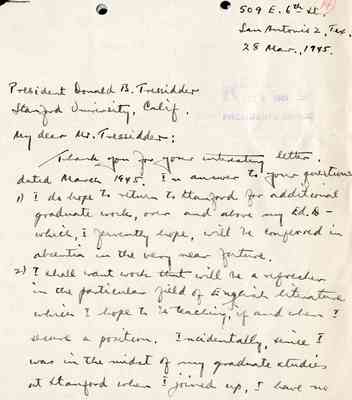 14
509 E. 6th St.
San Antonio 2, Tex.
28 Mar., 1945.
PRESIDENT'S OFFICE
President Donald B. Tressidder
Stanford University, Calif.
My dear Mr. Tressidder:
Thank you for your interesting letter
dated March 1945. In answer to your questions
1) I do hope to return to Stanford for additional
graduate work, over and above my Ed.D -
which, I fervently hope, will be conferred in
absentia in the very near future.
2) I shall want work that will be a refresher
in the particular field of English literature
which I hope to be teaching, if and when I
secure a position. Incidentally, since I
was in the midst of my graduate studies
at Stanford when I joined up, I have no